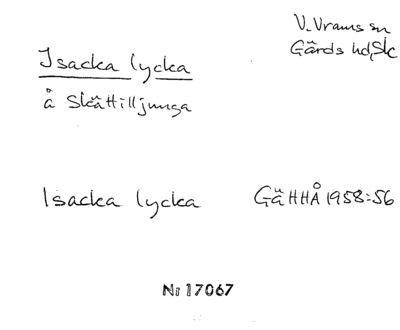 V. Vrams sn
Gärds hd, Sk
Isacka lycka
å Skättilljunga
Isacka lycka GäHHÅ 1958:56
Nr 17067